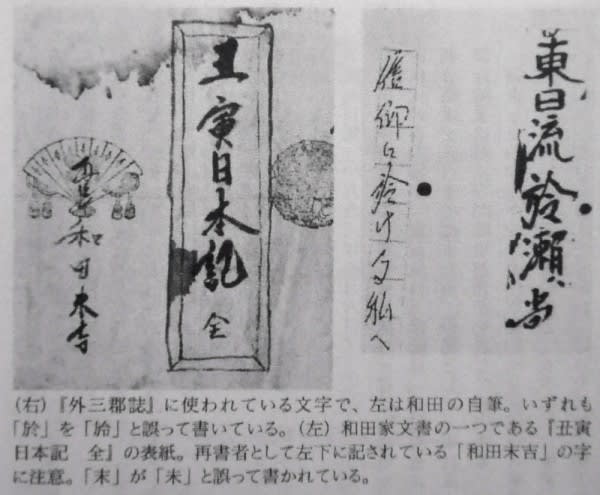 東日流
丑寅日本記 全
再書 和田未吉
(右)『外三郡誌』に使われている文字で、左は和田の自筆。いずれも
「於」を「」と誤って書いている。(左) 和田家文書の一つである『丑寅
日本記 全』の表紙。再書者として左下に記されている「和田末吉」の字
に注意。「末」が「未」と誤って書かれている。